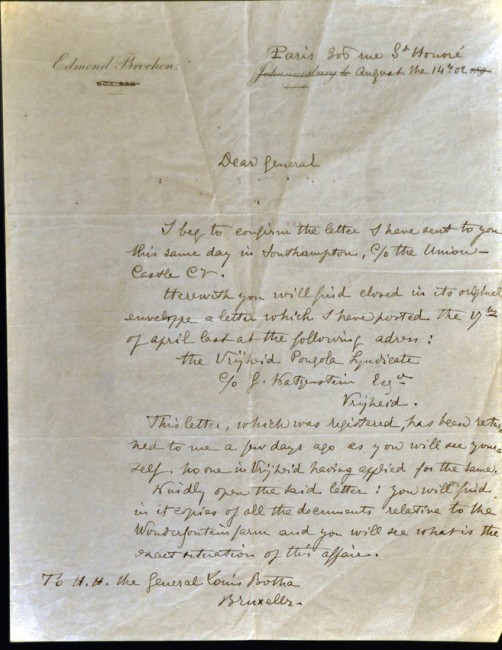 Edmond Brochon.
BOX 
Paris 306 rue St Honoré
Johannesburg le August the 14th 02
Dear General
I beg to confirm the letter I have sent to you
this same day in Southampton, c/o the Union-
Castle Cy.
Herewith you will find closed in its original
enveloppe a letter which I have posted the 17th
of april last at the following adress:
the Vrijheid Pongola Syndicate
c/o J. Katzenstein Esqre
Vrijheid.
This letter, which was registered, has been retur
ned to me a few days ago as you will see your
self. no one in Vrijheid having applied for the same.
Kindly open the said letter: you will find
in it copies of all the documents relative to the
Wonderfontein farm and you will see what is the
exact situation of this affair.
To H.H. the General Louis Botha
Bruxelles.